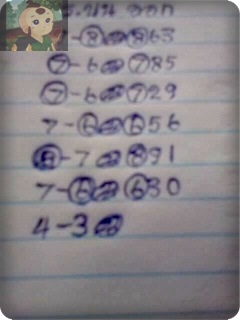 บน ออก
-8 863
7-6 785
7-6 729
7-6 656
8-7 891
7-6 630
4-3